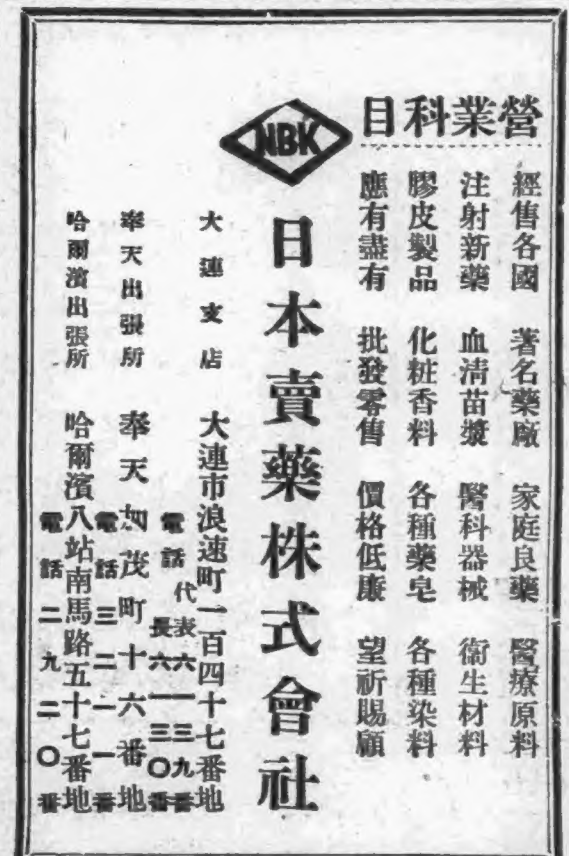 營業科目
經售各國 著名藥廠 家庭良藥 醫療原料
注射新藥 血淸苗漿 醫科器械 衞生材料
膠皮製品 化粧香料 各種藥皂 各種染料
應有盡有 批發零售 價格低廉 望祈賜顧
NBK
日本賣藥株式會社
大連支店 大連市浪速町一百四十七番地
電話 代表六一三九番
長六一三〇番
奉天出張所 奉天加茂町十六番地
電話三二一一番
哈爾濱出張所 哈爾濱八站南馬路五十七番地
電話二九二〇番